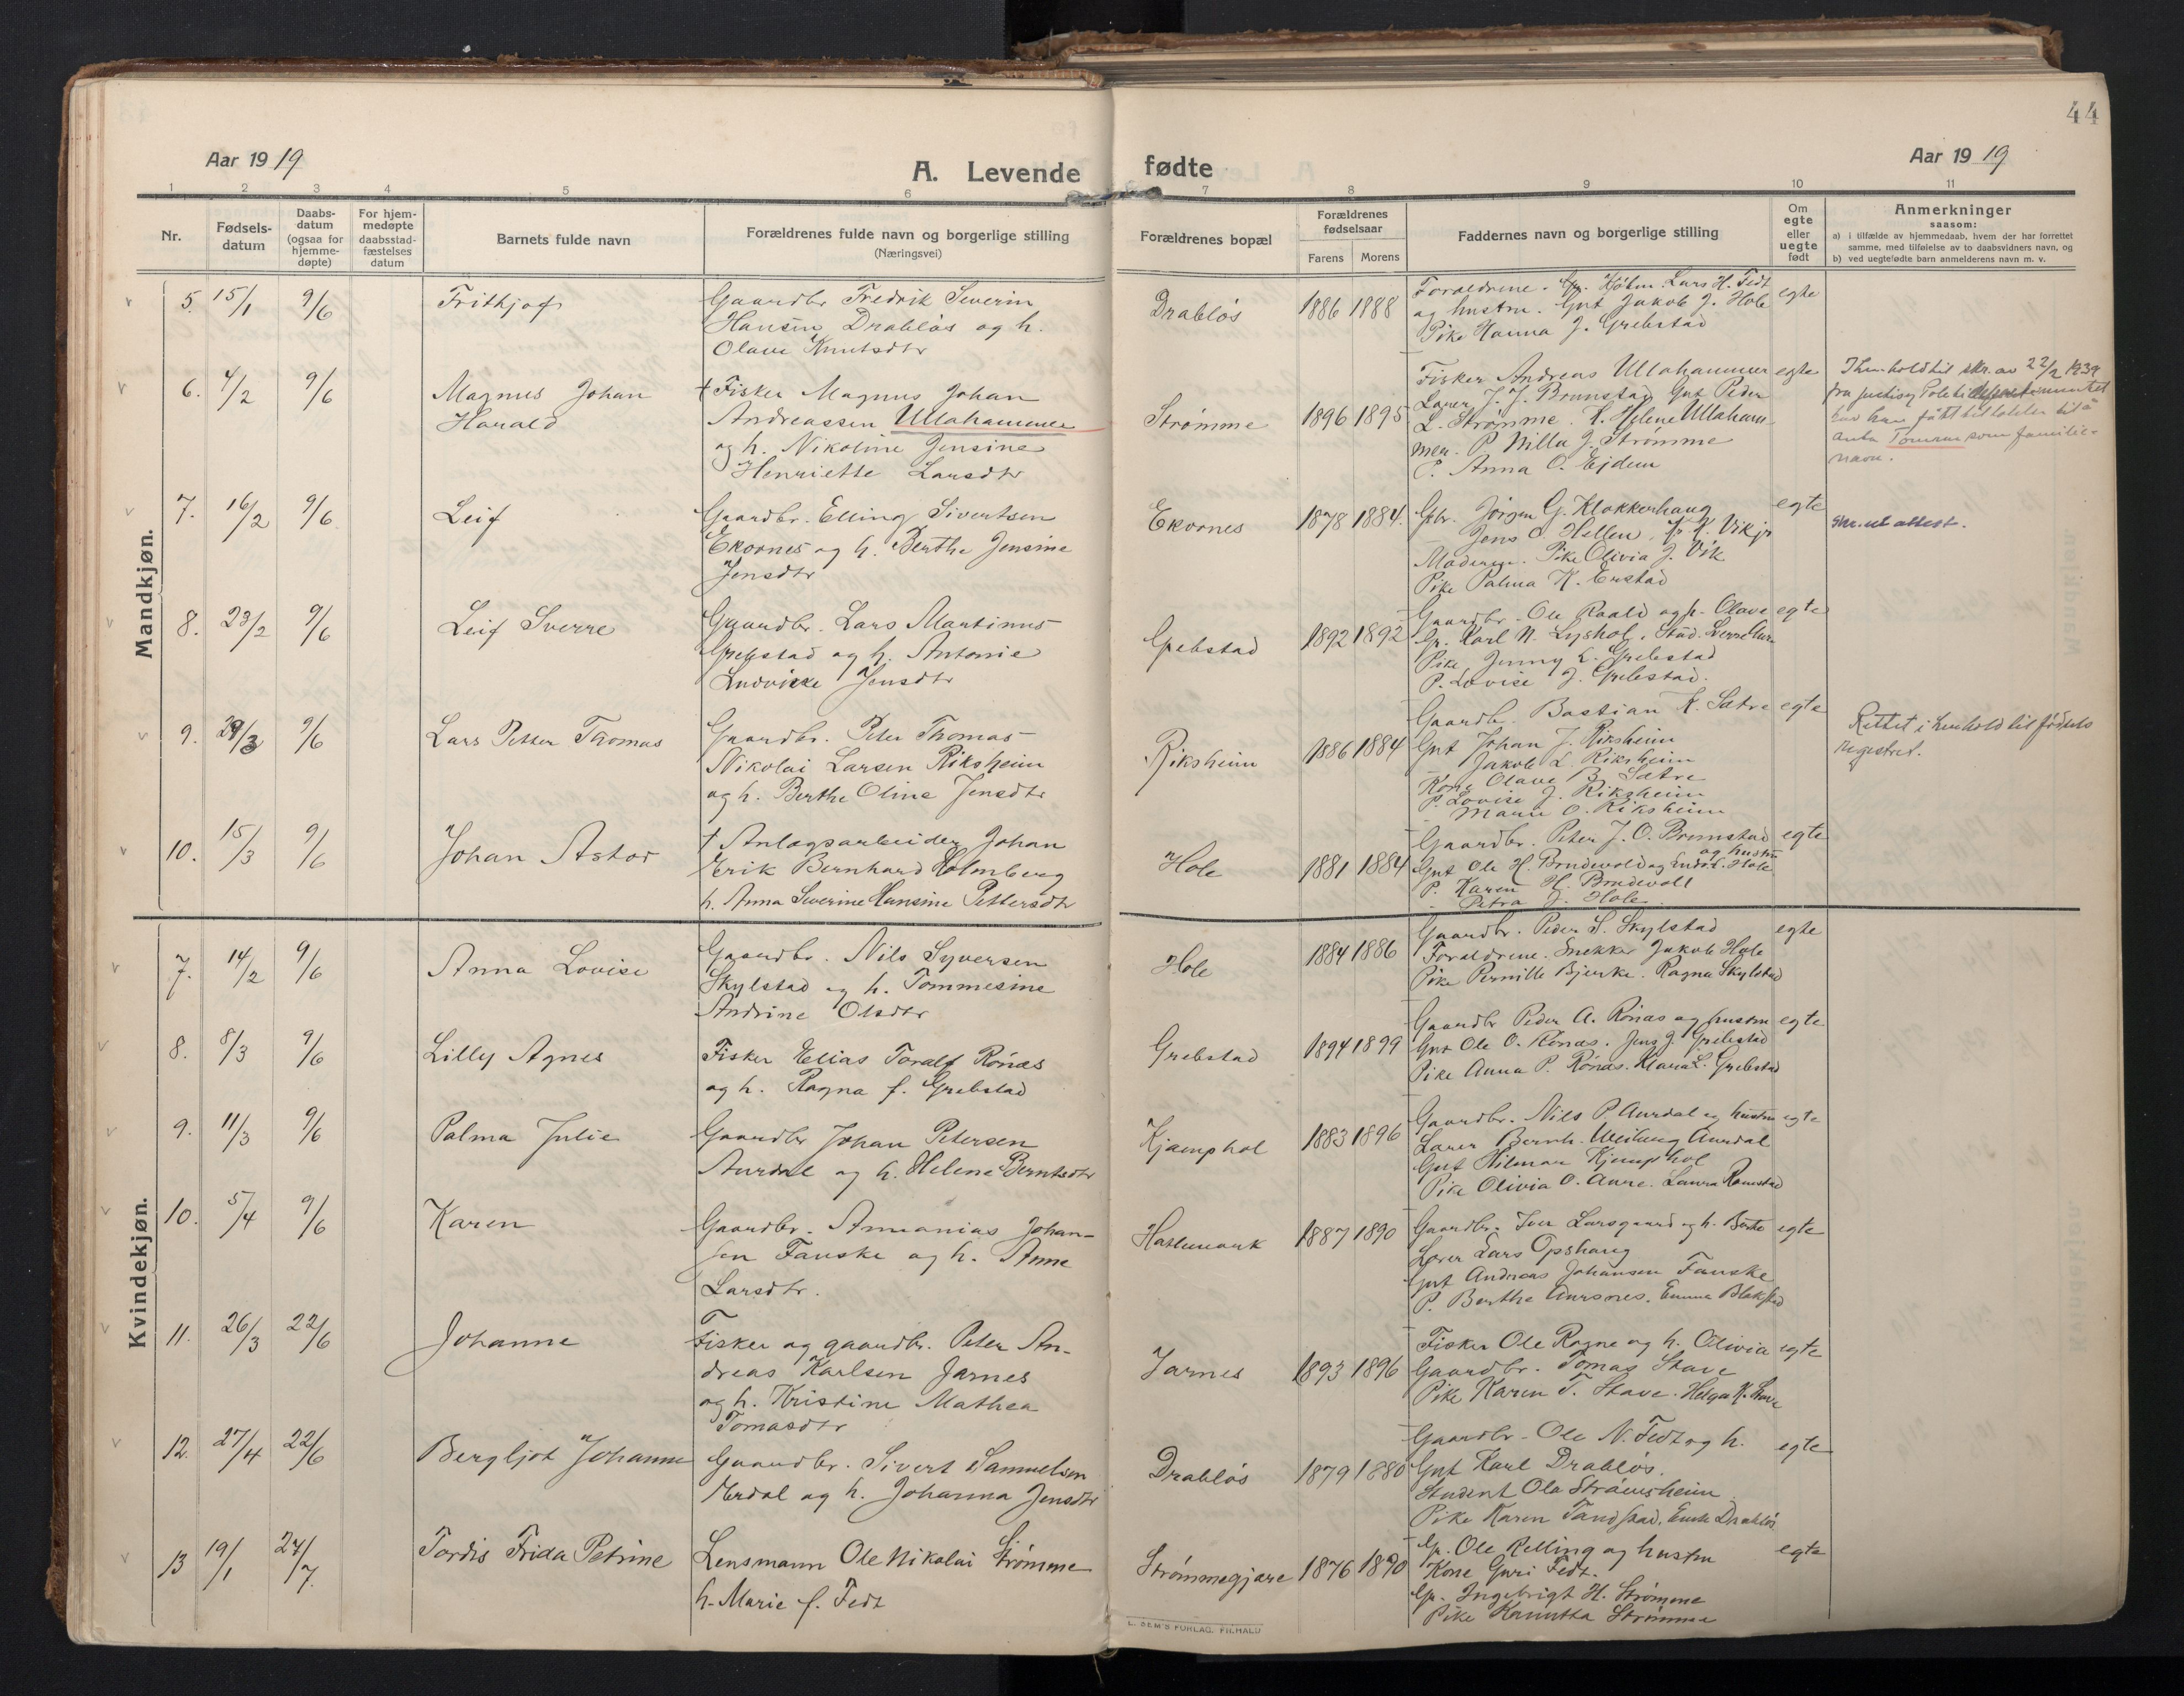 44
Aar 1919
A. Levende fødte
Aar 1919
1 2 3 4 5 6 7 8 9 10 11
Nr.
Fødsels-
datum
Daabs-
datum
(ogsaa for
hjemme-
døpte)
For hjem-
medøpte
daabsstad-
fæstelses
datum
Barnets fulde navn
Forældrenes fulde navn og borgerlige stilling
(Næringsvei)
Forældrenes bopæl
Forældrenes
fødselsaar
Farens Morens
Faddernes navn og borgerlige stilling
Om
egte
eller
uegte
født
Anmerkninger
saasom:
a) i tilfælde av hjemmedaab, hvem der har forrettet
samme, med tilføielse av to daabsvidners navn, og
b) ved uegtefødte barn anmelderens navn m. v.
Mandkjøn.
5. 15/1 9/6 Frithjof
Gaardbr Fredrik Severin
Hansen Drabløs og h.
Olave Knutsdtr
Drabløs 1886 1888
Foreldrene. Lars H. Fedt
og hustru. Gut Jakob J. Hole
Pike Hanna J. Grebstad
egte
6. 4/2 9/6 Magnus Johan
Harald
+ Fisker Magnus Johan
Andreassen Ullahammer
og h. Nikoline Jensine
Henriette Larsdtr
Strømme 1896 1895
Fisker Andreas Ullahammer
Lærer J. J. Brunstad Gut Peder
L. Strømme. K. Helene Ullaham-
mer. P. Nilla J. Strømme
P. Anna O. Ejdem
egte
I henhold til skr. av 22/2 1939
fra Justis og Politidepartementet
har han fått tillatelse til å
anta som familie-
navn.
7. 16/2 9/6 Leif
Gaardbr. Elling Sivertsen
Ekornes og h. Berthe Jensine
Jensdtr
Ekornes 1878 1884.
Gbr. Jørgen G. Klokkerhaug
Jens O. Hellen, P. K. Vik jr
Moderen. Pike Olivia J. Vik
Pike Palma K. Erstad
egte
Skr. ut attest.
8. 23/2 9/6 Leif Sverre
Gaardbr. Lars Martinus
Grebstad og h. Antonie
Ludvikke Jensdtr
Grebstad 1892 1892
Gaardbr. Ole Raald og h. Olave
Gr. Karl N. Lyshol. Stud. Sverre
Pike Jenny L. Grebstad
P. Lovise J. Grebstad.
egte
9. 29/3 9/6 Lars Petter Thomas
Gaardbr. Peter Thomas
Nikolai Larsen Riksheim
og h. Berthe Oline Jensdtr
Riksheim 1886 1884
Gaardb. Bastian K. Sætre
Gut Johan J. Riksheim
Jakob L. Riksheim
Kone Olave B. Sætre
P. Lovise J. Riksheim
Marie O. Riksheim
egte
Rettet i henhold til fødsels
registret.
10. 15/3 9/6 Johan Astor
+ Anlægsarbeider Johan
Erik Bernhard Holmberg
h. Anna Severine Hansine Pettersdtr
Hole 1881 1884
Gaardbr. Peter J. O. Brunstad
og hustru
Gut Ole H. Brudevold og Hole
P. Karen H. Brudevoll
Petra J. Hole.
egte
Kvindekjøn.
7. 14/2 9/6 Anna Lovise
Gaardbr. Nils Syversen
Skylstad og h. Tommesine
Andrine Olsdtr
Hole 1884 1886
Gaardbr. Peder S. Skylstad
Foreldrene. Snekker Jakob Hole
Pike Pernille Bjerke. Ragna Skylstad
egte
8. 8/3 9/6 Lilly Agnes
Fisker Elias Toralf Rønæs
og h. Ragna f. Grebstad
Grebstad 1894 1899
Gaardbr Peder A. Rønæs og hustru
Gut Ole O. Rønæs. Jens J. Grebstad
Pike Anna P. Rønæs. Klara L. Grebstad
egte
9. 11/3 9/6 Palma Julie
Gaardbr Johan Petersen
Aurdal og h. Helene Berntsdtr
Kjæmphol 1883 1896
Gaardbr. Nils P Aurdal og hustru
Lærer Bernh. Weiberg Aurdal
Gut Hilmar Kjemphol
Pike Olivia O. Aure. Laura Ramstad
egte
10. 5/4 9/6 Karen
Gaardbr. Annanias Johan-
sen Fauske og h. Anne
Larsdtr.
Hatlemark 1887 1890
Gaardbr. Iver Larsgaard og h. Berte
Lærer Lars Opshaug
Gut Andreas Johansen Fauske
P. Berthe Aursnes. Emma Blakstad
egte
11. 26/3 22/6 Johanne
Fisker og gaardbr. Peter An-
dreas Karlsen Jarnes
og h. Kristine Mathea
Tomasdtr
Jarnes 1893 1896
Fisker Ole Ragne og h. Olivia
Gaardbr. Tomas Stave
Pike Karen T. Stave. Helga K. Stave
egte
12. 27/4 22/6 Bergljot Johanne
Gaardbr. Sivert Samuelsen
Erdal og h. Johanna Jensdtr
Drabløs 1879 1880
Gaardbr. Ole N. Fedt og h.
Gut Karl Drabløs.
Student Ole Strømsheim
Pike Karen Tandstad. Drabløs
egte
13 19/1 27/7. Tordis Frida Petrine
Lensmann Ole Nikolai Strømme
h. Marie f. Fedt
Strømmegjære 1876 1890
Gr. Ole Relling og hustru
Kone Guri Fedt.
Gr. Ingebrigt H. Strømme
Pike Kanutta Strømme
egte
L. SEM'S FORLAG. FR.HALD